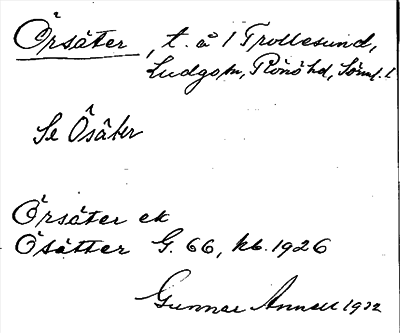 Örsäter, t. å 1 Trollesund,
Ludgo sn, Rönö hd, Sömnl. l.
Se Ösäter
Örsäter ek
Ösätter G. 66, kb. 1926
Gunnar Annell 1932